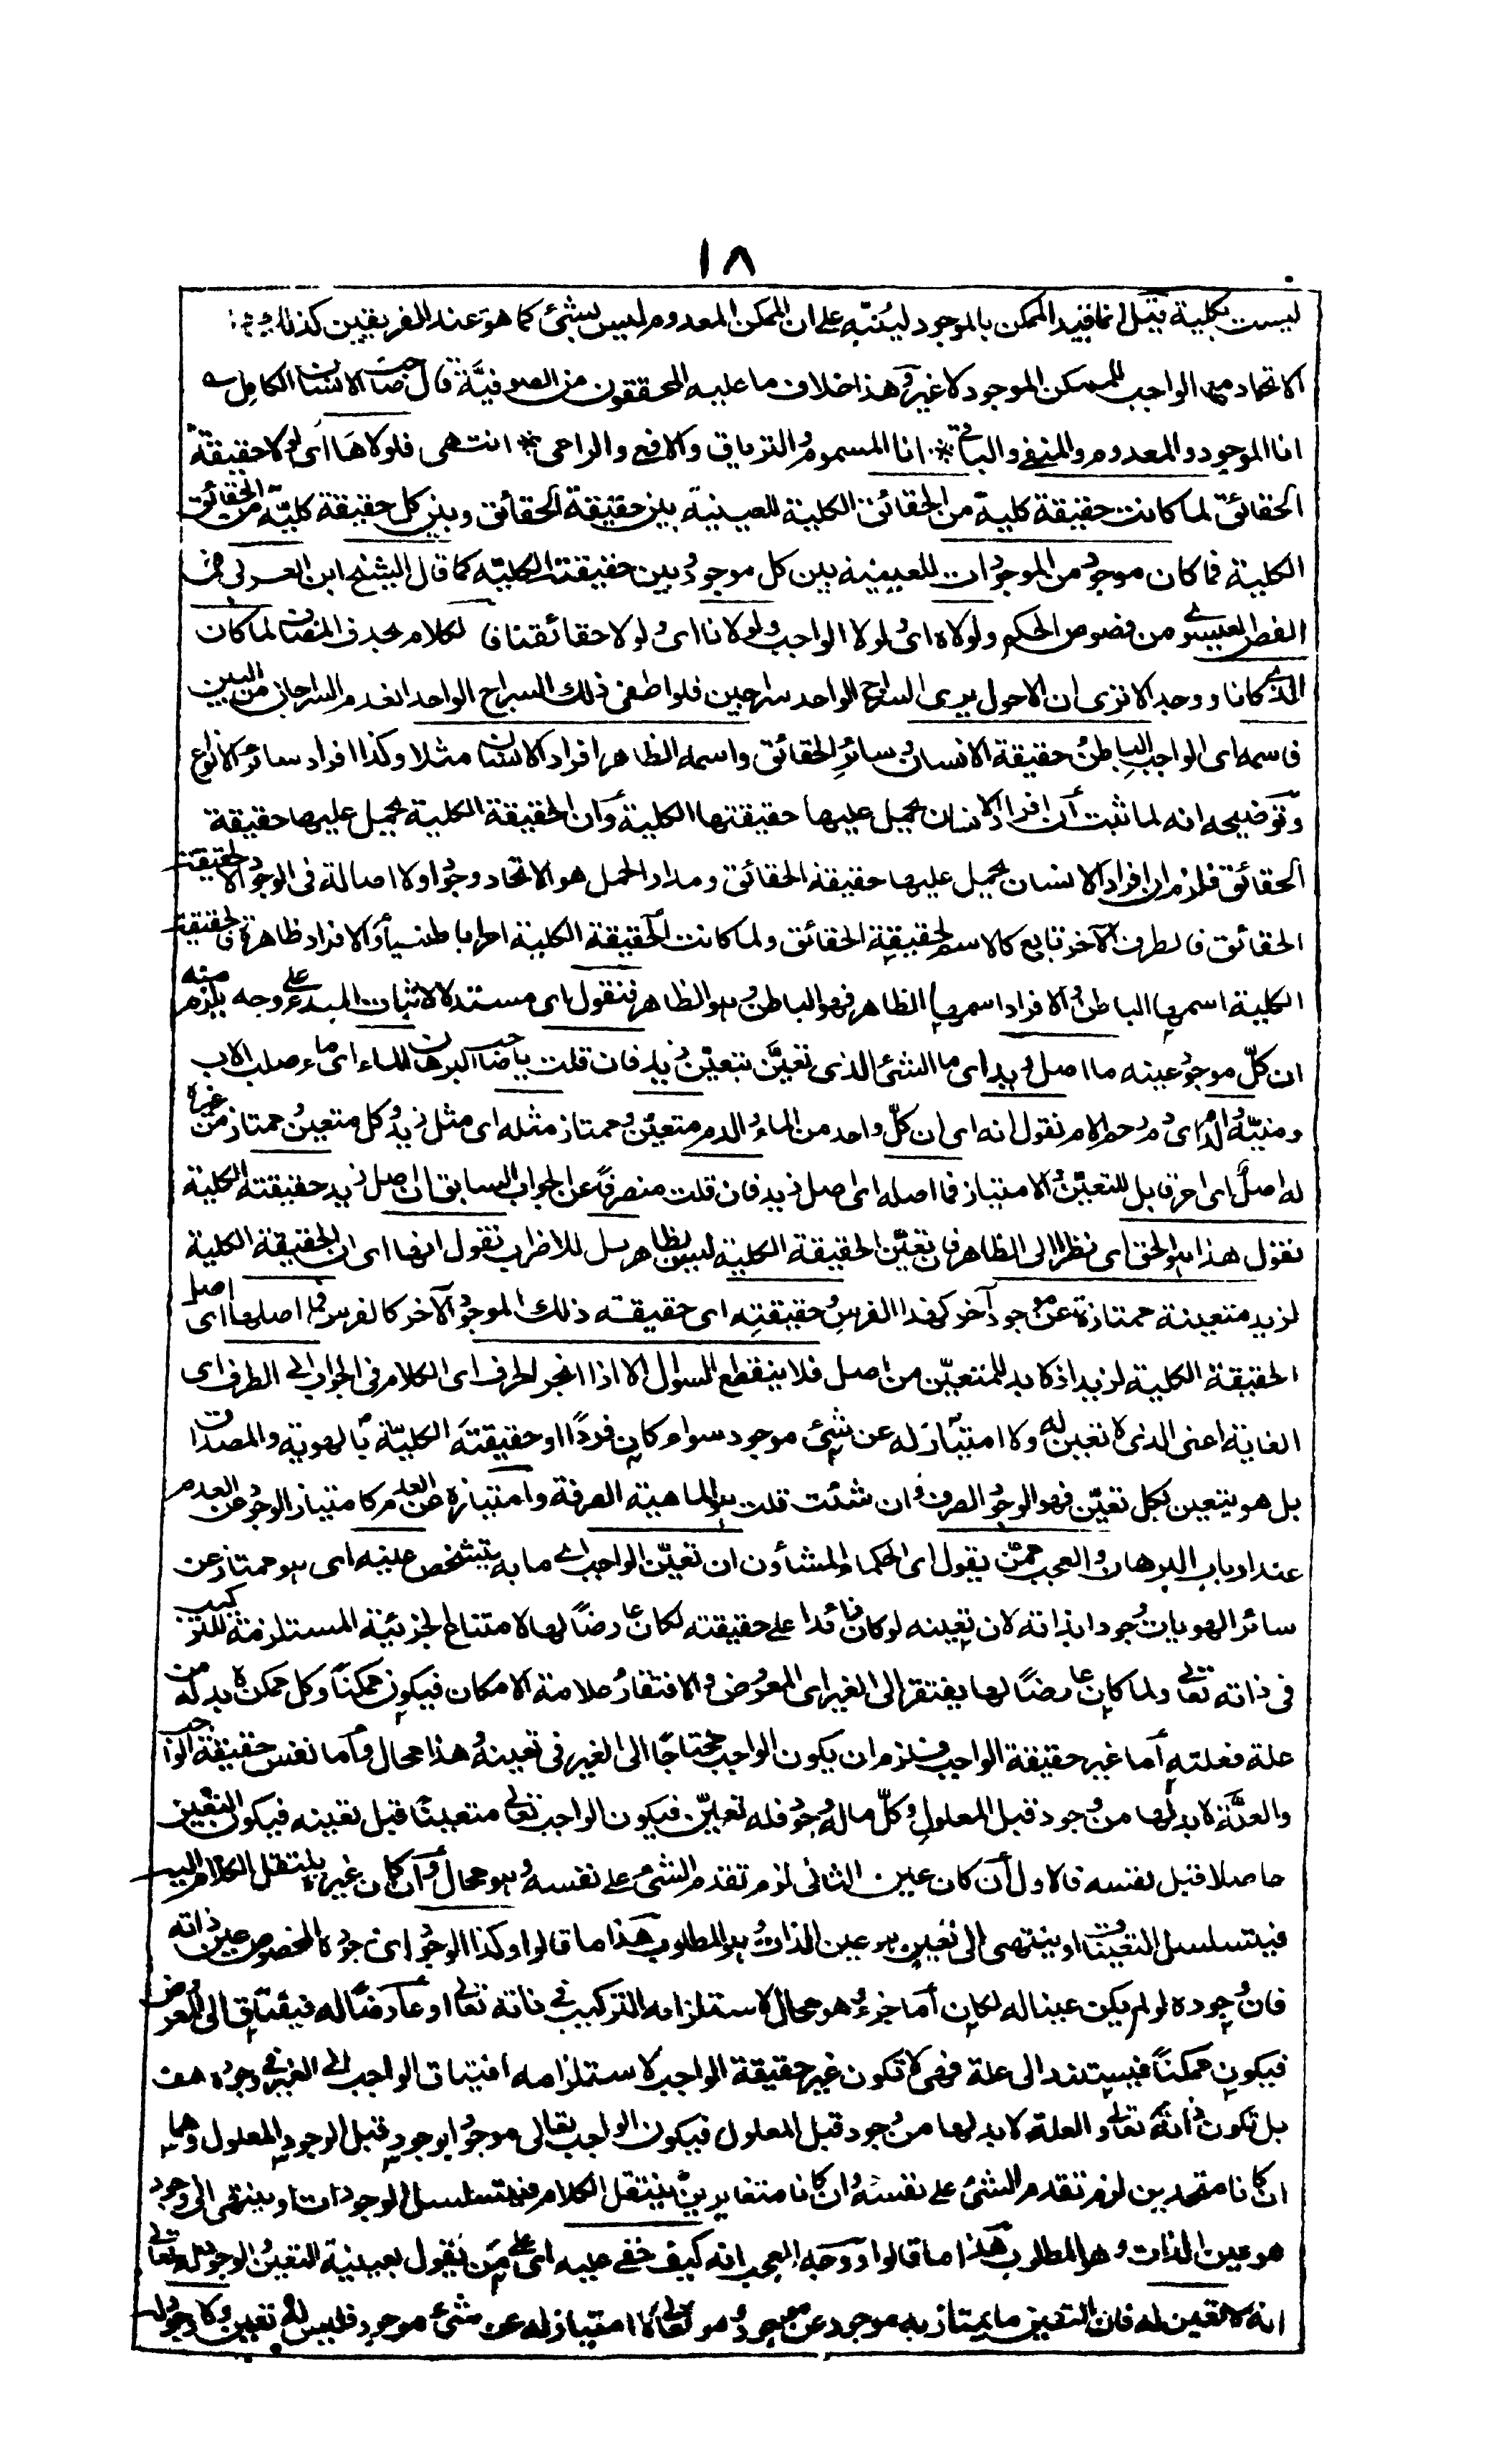 ١٨
ليست بكلية قيل انما قيد الممكن بالموجود لينبّه على ان الممكن المعدوم ليس بشئ كما هو عند الفريقين كذلك
الاتحاد مع الواجب للممكن الموجود لا غير وهذا خلاف ما عليه المحققون من الصوفيّة قال صاحب الانسان الكامل
انا الموجود والمعدوم والمنفي والباقي * انا المسموم والترياق والافع والراعى * انتهى فلولاها اى لولا حقيقة
الحقائق لما كانت حقيقة كليّة من الحقائق الكلية للعينية بين حقيقة الحقائق وبين كل حقيقة كليّة من الحقائق
الكلية فما كان موجود من الموجودات للعينية بين كل موجود وبين حقيقته الكليّة كما قال الشيخ ابن العربي في
الفص العيسوي من فصوص الحكم ولولاه اى لولا الواجب ولولانا اى ولولا حقائقنا فالكلام بحذف المضاف لما كان
الذي كانا ووجد الا ترى ان الاحول يرى السراج الواحد سراجين فلو اطفئ ذلك السراج الواحد انعدم السراجان من البين
فاسمه اى الواجب الباطن حقيقة الانسان وسائر الحقائق واسمه الظاهر افراد الانسان مثلا وكذا افراد سائر الانواع
وتوضيحه انه لما ثبت أن افراد الانسان يحمل عليها حقيقتها الكلية وأن الحقيقة الكلية يحمل عليها حقيقة
الحقائق فلزم ان افراد الانسان يحمل عليها حقيقة الحقائق ومدار الحمل هو الاتحاد وجودا ولا اصالة في الوجود الا لحقيقة
الحقائق فالطرف الآخر تابع كالاسم لحقيقة الحقائق ولما كانت الحقيقة الكلية امرا باطنيا والافراد ظاهرة فالحقيقة
الكلية اسمها الباطن والافراد اسمها الظاهر فهو الباطن وهو الظاهر فنقول اى مستدلا لاثبات المبدء على وجه يلزم منه
ان كلّ موجود عينه ما اصل زيد اى ما الشئ الذى تعيّن بتعيّن زيد فان قلت يا صاحب البرهان الماء اى ماء صلب الاب
ومنيّه والدم اى دم رحم الام نقول انه اى ان كلّ واحد من الماء والدم متعيّن وممتاز مثله اى مثل زيد وكل متعين وممتاز من غيره
له اصل اى امر قابل للتعيّن والامتياز فما اصله اى اصل زيد فان قلت منصرفًا عن الجواب السابق ان اصل زيد حقيقته الكلية
نقول هذا هو الحق اى نظرا الى الظاهر فان تعيّن الحقيقة الكلية ليس بظاهر بل للاضراب نقول انها اى ان الحقيقة الكلية
لزيد متعينة ممتازة عن موجود آخر كهذا الفرس وحقيقته اى حقيقة ذلك الموجود الآخر كالفرس فما اصلها اى اصل
الحقيقة الكلية لزيد اذ لا بد للمتعيّن من اصل فلا ينقطع السوال الا اذا انجر الحرف اى الكلام فى الجواب الى الطرف اى
الغاية اعنى الذى لا تعين له ولا امتياز له عن شئ موجود سواء كان فردًا او حقيقته الكليّة بالهوية والمصداق
بل هو يتعين بكل تعيّن فهو الوجود الصرف وان شئت قلت هو الماهية الصرفة وامتيازه عن العدم كامتياز الوجود عن العدم
عند ارباب البرهان والعجب ممّن يقول اى الحكماء المشاؤن ان تعيّن الواجب اى ما به يتشخص عينه اى هو ممتاز عن
سائر الهويات وجودا بذاته لان تعينه لو كان زائدا على حقيقته لكان عارضًا لها لامتناع الجزئية المستلزمة للتركيب
فى ذاته تعالى ولما كان عارضًا لها يفتقر الى الغير اى المعروض والافتقار علامة الامكان فيكون ممكنًا وكل ممكن لا بد له من
علة فعلته أما غير حقيقة الواجب فلزم ان يكون الواجب محتاجًا الى الغير فى تعينه وهذا محال وأما نفس حقيقة الواجب
والعلّة لا بد لها من وجود قبل المعلول وكلّ ماله وجود فله تعيّن فيكون الواجب تعالى متعينًا قبل تعينه فيكون التعين
حاصلا قبل نفسه فالاول أن كان عين الثانى لزم تقدم الشئ على نفسه وهو محال وأن كان غيره ينتقل الكلام اليه
فيتسلسل التعينات او ينتهى الى تعين هو عين الذات وهو المطلوب هذا ما قالوا وكذا الوجود اى وجوده المخصوص عين ذاته
فان وجوده لو لم يكن عينا له لكان أما جزء وهو محال لاستلزامه التركيب في ذاته تعالى او عارضًا له فيفتاق الى المعروض
فيكون ممكنًا فيستند الى علة فهى لا تكون غير حقيقة الواجب لاستلزامه افتياق الواجب الى الغير في وجوده هف
بل تكون ذاته تعالى والعلة لا بد لها من وجود قبل المعلول فيكون الواجب تعالى موجودا بوجود قبل الوجود المعلول وهما
ان كانا متحدين لزم تقدم الشئ على نفسه وان كانا متغايرين ينتقل الكلام فيتسلسل الوجودات او ينتهى الى وجود
هو عين الذات وهو المطلوب هذا ما قالوا ووجه العجب انه كيف خفى عليه اى على من يقول بعينية التعين والوجود له تعالى
انه لا تعين له فان التعين ما يمتاز به موجود عن موجود وهو تعالى لا امتياز له عن شئ موجود فليس له تعين ولا وجود له